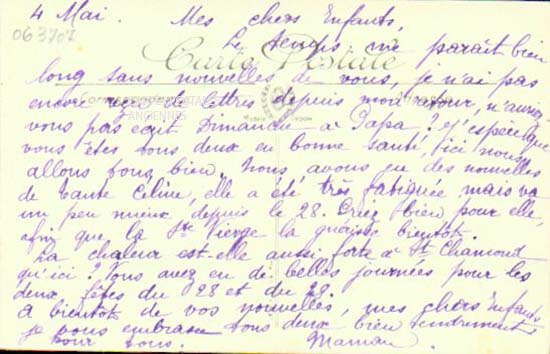 4 Mai. Mes chers Enfants,
063707
Carte Postale
Le temps me paraît bien
long sans nouvelles de vous, je n'ai pas
encore reçu de lettres depuis mon retour, n'auriez
vous pas écrit Dimanche à Papa? J'espère que
ANCIENNES
vous êtes tous deux en bonne santé, ici nous
allons tous bien. Nous avons eu des nouvelles
de tante Céline, elle a été très fatiguée mais va
un peu mieux depuis le 28. Priez bien pour elle,
afin que la Ste Vierge la guérisse bientôt.
La chaleur est-elle aussi forte à St Chamond
qu'ici? Vous avez eu de belles journées pour les
deux fêtes du 28 et du
à bientôt de vos nouvelles, mes chers Enfants
je vous embrasse tous deux bien tendrement
pour tous. Maman